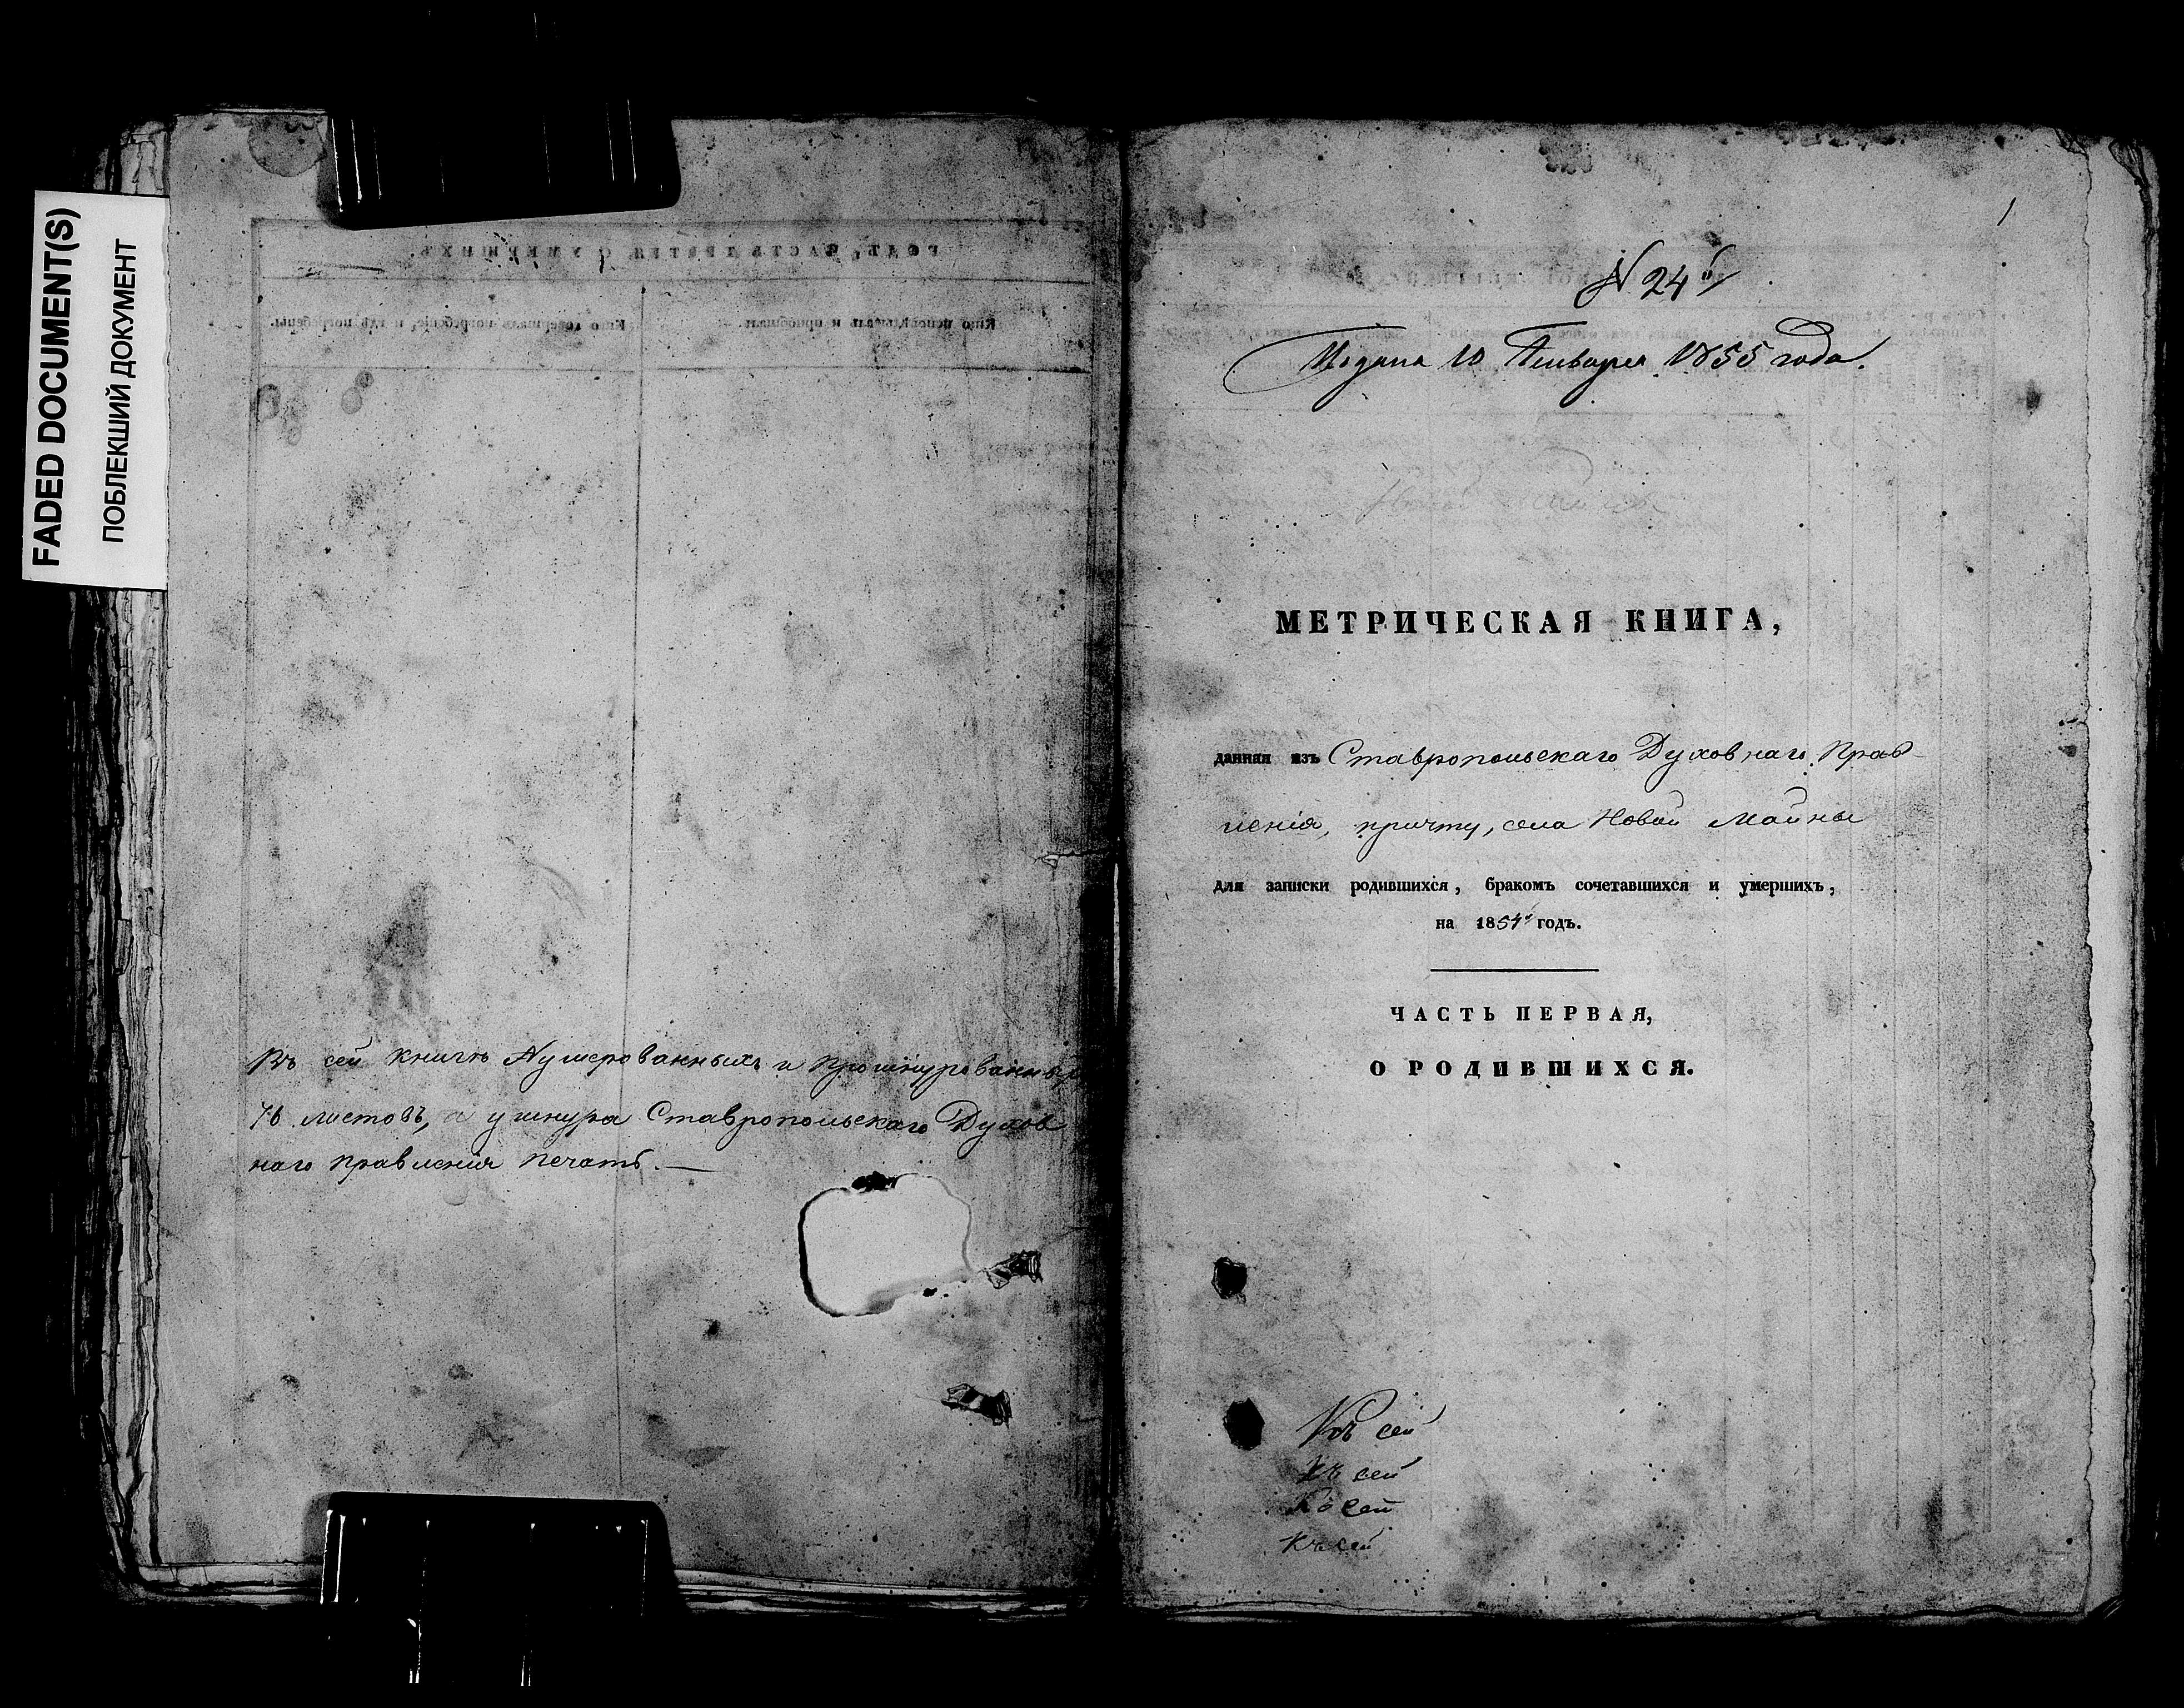 FADED DOCUMENT(S)
ПОБЛЕКШИЙ ДОКУМЕНТ
Въ сей книгѣ Нумерованныхъ и прошнурованных
листовъ, а у шнура Ставропольскаго Духов
наго правленія печать. —
1
N 24й
Подана 10 Января 1855 года.
МЕТРИЧЕСКАЯ КНИГА,
данная изъ Ставропольскаго Духовнаго Прав-
ленія, причту, села Новой Майны
для записки родившихся, бракомъ сочетавшихся и умершихъ,
на 1854й годъ.
ЧАСТЬ ПЕРВАЯ,
О РОДИВШИХСЯ.
Къ сей
Къ сей
Ко сей
Къ сей